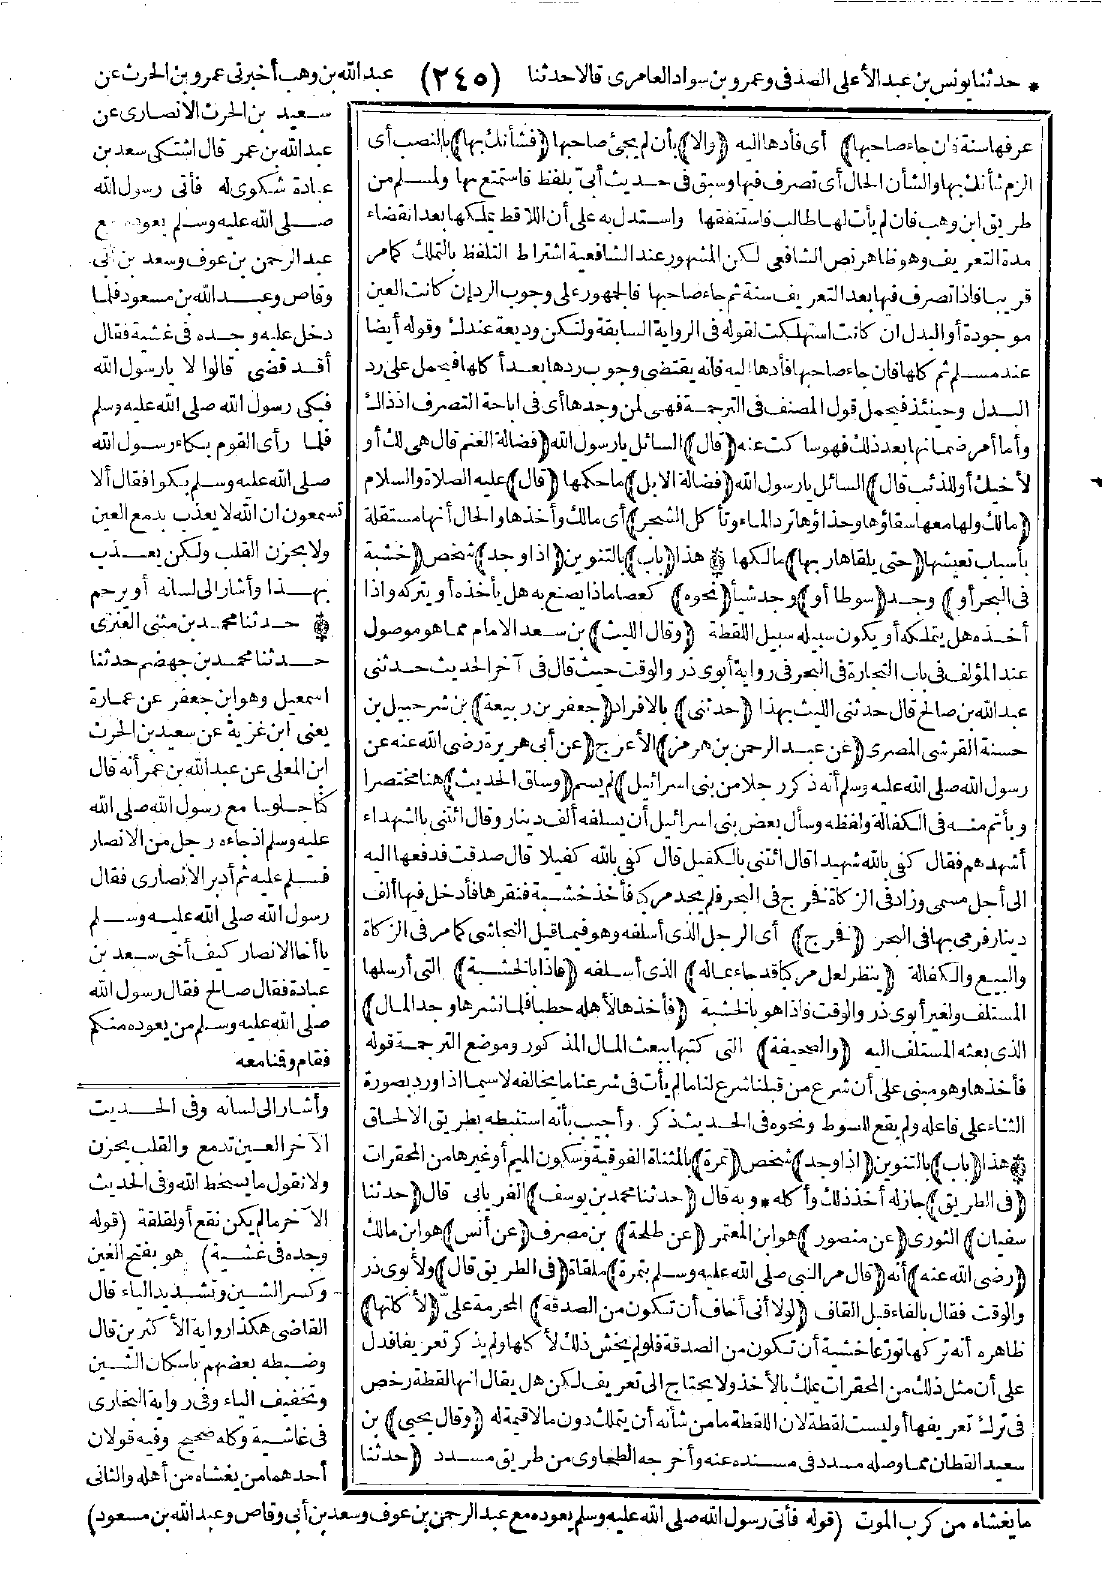 * حدثنا يونس بن عبد الأعلى الصدفى وعمرو بن سواد العامرى قالا حدثنا (٢٤٥) عبد الله بن وهب أخبرنى عمرو بن الحرث عن
سعيد بن الحرث الانصارى عن
عبد الله بن عمر قال اشتكى سعد بن
عبادة شكوى له فأتى رسول الله
صلى الله عليه وسلم يعوده مع
عبد الرحمن بن عوف وسعد بن أبى
وقاص وعبد الله بن مسعود فلما
دخل عليه وجده فى غشية فقال
أقد قضى قالوا لا يا رسول الله
فبكى رسول الله صلى الله عليه وسلم
فلما رأى القوم بكاء رسول الله
صلى الله عليه وسلم بكوا فقال ألا
تسمعون ان الله لا يعذب بدمع العين
ولا بحزن القلب ولكن يعذب
بهذا وأشار الى لسانه أو يرحم
حدثنا محمد بن مثنى العنزى
حدثنا محمد بن جهضم حدثنا
اسمعيل وهو ابن جعفر عن عمارة
يعنى ابن غزية عن سعيد بن الحرث
ابن المعلى عن عبد الله بن عمر أنه قال
كنا جلوسا مع رسول الله صلى الله
عليه وسلم اذ جاءه رجل من الانصار
فسلم عليه ثم أدبر الانصارى فقال
رسول الله صلى الله عليه وسلم
يا أخا الانصار كيف أخى سعد بن
عبادة فقال صالح فقال رسول الله
صلى الله عليه وسلم من يعوده منكم
فقام وقنا معه
عرفها سنة فان جاء صاحبها) أى فأدها اليه (والا) بأن لم يجئ صاحبها (فشأنك بها) بالنصب أى
الزم شأنك بها والشأن الحال أى تصرف فيها وسبق فى حديث أبىّ بلفظ فاستمتع بها ولمسلم من
طريق ابن وهب فان لم يأت لها طالب فاستنفقها واستدل به على أن اللاقط يملكها بعد انقضاء
مدة التعريف وهو ظاهر نص الشافعى لكن المشهور عند الشافعية اشتراط التلفظ بالتملك كما مر
قريبا فاذا تصرف فيها بعد التعريف سنة ثم جاء صاحبها فالجمهور على وجوب الرد ان كانت العين
موجودة أو البدل ان كانت استهلكت لقوله فى الرواية السابقة ولتكن وديعة عندك وقوله أيضا
عند مسلم ثم كلها فان جاء صاحبها فأدها اليه فانه يقتضى وجوب ردها بعد أكلها فيحمل على رد
البدل وحينئذ فيحمل قول المصنف فى الترجمة فهى لمن وجدها أى فى اباحة التصرف اذ ذاك
وأما أمر ضمانها بعد ذلك فهو ساكت عنه (قال) السائل يا رسول الله (فضالة الغنم قال هى لك أو
لأخيك أو للذئب قال) السائل يا رسول الله (فضالة الابل) ما حكمها (قال) عليه الصلاة والسلام
(مالك ولها معها سقاؤها وحذاؤها ترد الماء وتأكل الشجر) أى مالك وأخذها والحال أنها مستقلة
بأسباب تعيشها (حتى يلقاها ربها) مالكها هذا (باب) بالتنوين (اذا وجد) شخص (خشبة
فى البحر أو) وجد (سوطا أو) وجد شيأ (نحوه) كعصا ماذا يصنع به هل يأخذه أو يتركه واذا
أخذه هل يتملكه أو يكون سبيله سبيل اللقطة (وقال الليث) بن سعد الامام مما هو موصول
عند المؤلف فى باب التجارة فى البحر فى رواية أبوى ذر والوقت حيث قال فى آخر الحديث حدثنى
عبد الله بن صالح قال حدثنى الليث بهذا (حدثنى) بالافراد (جعفر بن ربيعة) بن شرحبيل بن
حسنة القرشى المصرى (عن عبد الرحمن بن هرمز) الأعرج (عن أبى هريرة رضى الله عنه عن
رسول الله صلى الله عليه وسلم أنه ذكر رجلا من بنى اسرائيل) لم يسم (وساق الحديث) هنا مختصرا
وبأتم منه فى الكفالة ولفظه وسأل بعض بنى اسرائيل أن يسلفه ألف دينار وقال ائتنى بالشهداء
أشهدهم فقال كفى بالله شهيدا قال ائتنى بالكفيل قال كفى بالله كفيلا قال صدقت فدفعها اليه
الى أجل مسمى وزاد فى الزكاة فخرج فى البحر فلم يجد مركبا فأخذ خشبة فنقرها فأدخل فيها ألف
دينار فرمى بها فى البحر (فخرج) أى الرجل الذى أسلفه وهو فيما قيل النجاشى كما مر فى الزكاة
والبيع والكفالة (ينظر لعل مركبا قد جاء بماله) الذى أسلفه (فاذا بالخشبة) التى أرسلها
المستلف ولغير أبوى ذر والوقت فاذا هو بالخشبة (فأخذها لأهله حطبا فلما نشرها وجد المال)
الذى بعثه المستلف اليه (والصحيفة) التى كتبها ببعث المال المذكور وموضع الترجمة قوله
فأخذها وهو مبنى على أن شرع من قبلنا شرع لنا ما لم يأت فى شرعنا ما يخالفه لا سيما اذا ورد بصورة
الثناء على فاعله ولم يقع للسوط ونحوه فى الحديث ذكر وأجيب بأنه استنبطه بطريق الالحاق
هذا (باب) بالتنوين (اذا وجد) شخص (تمرة) بالمثناة الفوقية وسكون الميم أو غيرها من المحقرات
(فى الطريق) جاز له أخذ ذلك وأكله * وبه قال (حدثنا محمد بن يوسف) الفريابى قال (حدثنا
سفيان) الثورى (عن منصور) هو ابن المعتمر (عن طلحة) بن مصرف (عن أنس) هو ابن مالك
(رضى الله عنه) أنه (قال مر النبى صلى الله عليه وسلم بتمرة) ملقاة (فى الطريق قال) ولأبوى ذر
والوقت فقال بالفاء قبل القاف (لولا أنى أخاف أن تكون من الصدقة) المحرمة علىّ (لأكلتها)
ظاهره أنه تركها تورعا خشية أن تكون من الصدقة فلو لم يخش ذلك لأكلها ولم يذكر تعريفا فدل
على أن مثل ذلك من المحقرات يملك بالأخذ ولا يحتاج الى تعريف لكن هل يقال انها لقطة رخص
فى ترك تعريفها أو ليست لقطة لان اللقطة ما من شأنه أن يتملك دون ما لا قيمة له (وقال يحيى) بن
سعيد القطان مما وصله مسدد فى مسنده عنه وأخرجه الطحاوى من طريق مسدد (حدثنا
وأشار الى لسانه وفى الحديث
الآخر العين تدمع والقلب يحزن
ولا نقول ما يسخط الله وفى الحديث
الآخر ما لم يكن نقع أو لقلقة (قوله
وجده فى غشية) هو بفتح الغين
وكسر الشين وتشديد الياء قال
القاضى هكذا رواية الأكثرين قال
وضبطه بعضهم باسكان الشين
وتخفيف الياء وفى رواية البخارى
فى غاشية وكله صحيح وفيه قولان
أحدهما من يغشاه من أهله والثانى
ما يغشاه من كرب الموت (قوله فأتى رسول الله صلى الله عليه وسلم يعوده مع عبد الرحمن بن عوف وسعد بن أبى وقاص وعبد الله بن مسعود)